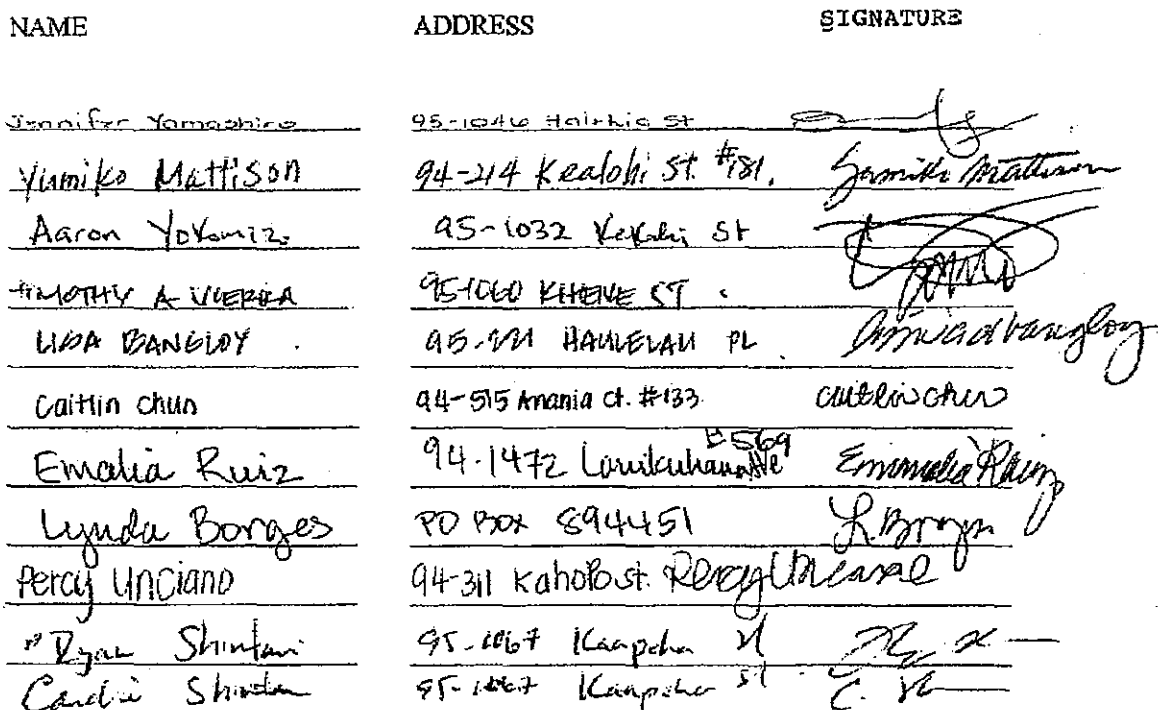 NAME ADDRESS SIGNATURE
Jennifer Yamashiro 95-1046 St
Yumiko Mattison 94-214 Kealohi St. #181. Yumiko Mattison
Aaron Yokomizo 95-1032 Kekahi St
TIMOTHY A VIERRA 95-1060 KIHENE ST.
LISA BANGLOY 95-221 HAULELAU PL
Caitlin Chun 94-515 Anania Ct. #133 Caitlin Chun
Emalia Ruiz 94-1472 Lanikuhana Ave #569 Emmalia Ruiz
Lynda Borges PO BOX 894451 L. Borges
Percy Unciano 94-311 Kahopo St. Percy Unciano
Ryan Shintani 95-1067 St
Shintani 95-1067 St